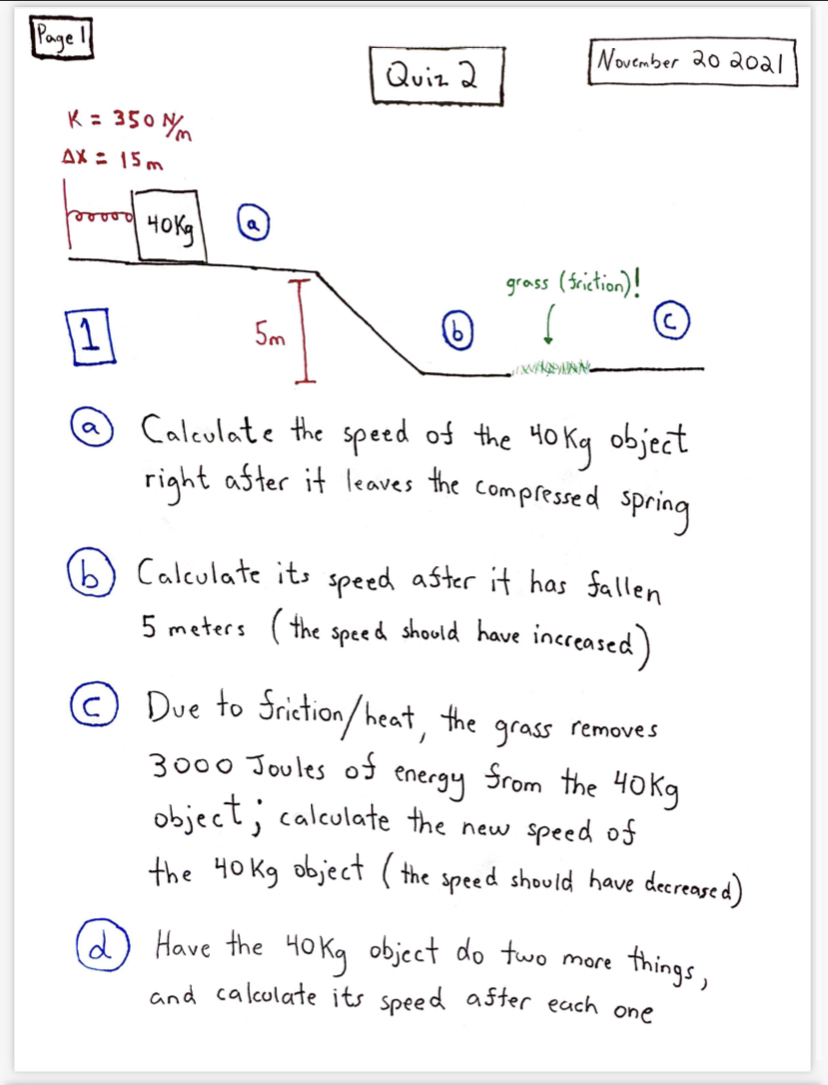 Page 1
Quiz 2
November 20 2021
K = 350 N/m
Δx = 15m
40Kg
a
grass (friction)!
1
5m
b
c
a Calculate the speed of the 40Kg object
right after it leaves the compressed spring
b Calculate its speed after it has fallen
5 meters (the speed should have increased)
c Due to friction/heat, the grass removes
3000 Joules of energy from the 40Kg
object; calculate the new speed of
the 40Kg object (the speed should have decreased)
d Have the 40Kg object do two more things,
and calculate its speed after each one